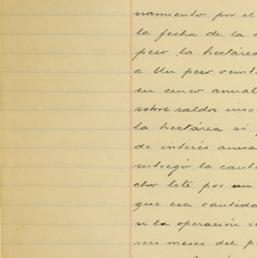 namiento por el
la fecha de la
peso la hectárea
a Un peso veint
en cinco anual
sobre saldos inso
la hectárea si
de interés anua
entregó la canti
cho lote por un
que esa cantida
si la operación s
seis meses del p